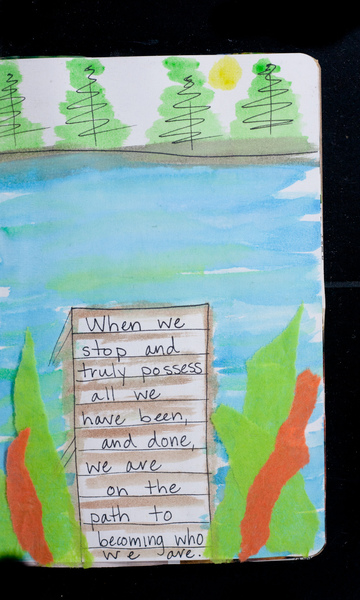 When we
stop and
truly possess
all we
have been,
and done,
we are
on the
path to
becoming who
we are.